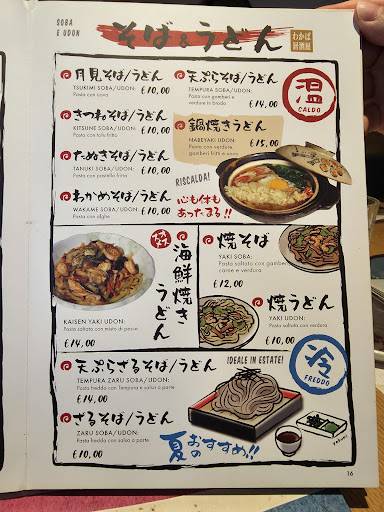 SOBA
E UDON
そば&うどん
わかば
居酒屋
月見そば/うどん
TSUKIMI SOBA/UDON:
Pasta con uova
€ 10,00
きつねそば/うどん
KITSUNE SOBA/UDON:
Pasta con tofu fritto
€ 10,00
たぬきそば/うどん
TANUKI SOBA/UDON:
Pasta con pastella fritta
€ 10,00
わかめそば/うどん
WAKAME SOBA/UDON:
Pasta con alghe
€ 10,00
天ぷらそば/うどん
TEMPURA SOBA/UDON:
Pasta con gamberi e
verdure in brodo
€ 14,00
温
CALDO
鍋焼きうどん
NABEYAKI UDON:
Pasta con verdure
gamberi fritti e uova
€ 15,00
RISCALDA!
心も体も
あったまる!!
海鮮焼きうどん
KAISEN YAKI UDON:
Pasta saltata con misto di pesce
€ 14,00
焼そば
YAKI SOBA:
Pasta saltata con gamberi,
carne e verdura
€ 12,00
焼うどん
YAKI UDON:
Pasta saltata
con verdura
€ 10,00
天ぷらざるそば/うどん
TEMPURA ZARU SOBA/UDON:
Pasta fredda con Tempura e salsa a parte
€ 14,00
ざるそば/うどん
ZARU SOBA/UDON:
Pasta fredda con salsa a parte
€ 10,00
IDEALE IN ESTATE!
冷
FREDDO
夏の
おすすめ!!
16